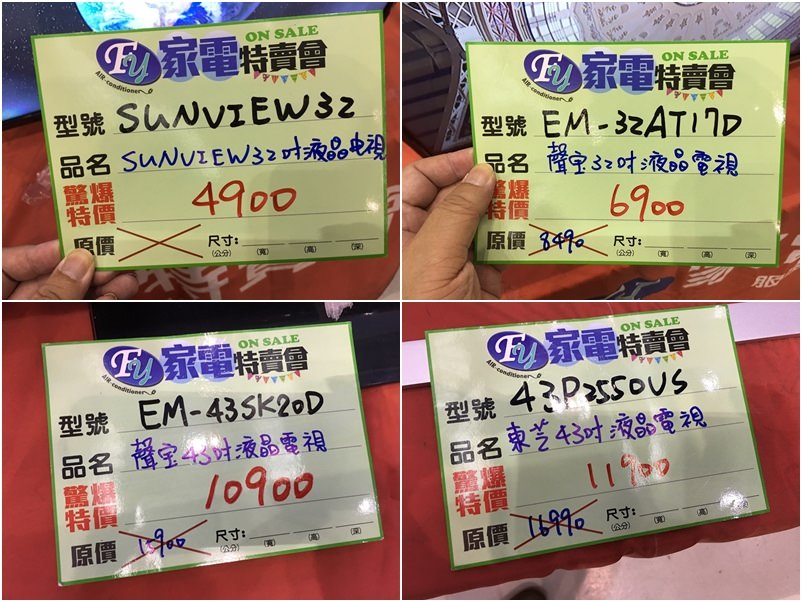 ON SALE
Fy 家電特賣會
AIR-conditioner
型號 SUNVIEW32
品名 SUNVIEW32吋液晶电視
驚爆特價 4900
原價 尺寸:(公分) (寬) (高) (深)
ON SALE
Fy 家電特賣會
AIR-conditioner
型號 EM-32AT17D
品名 聲宝32吋液晶電視
驚爆特價 6900
原價 8490 尺寸:(公分) (寬) (高) (深)
ON SALE
Fy 家電特賣會
AIR-conditioner
型號 EM-43SK20D
品名 聲宝43吋液晶電視
驚爆特價 10900
原價 尺寸:(公分) (寬) (高) (深)
ON SALE
Fy 家電特賣會
AIR-conditioner
型號 43P2550US
品名 東芝43吋液晶電視
驚爆特價 11900
原價 16990 尺寸:(公分) (寬) (高) (深)